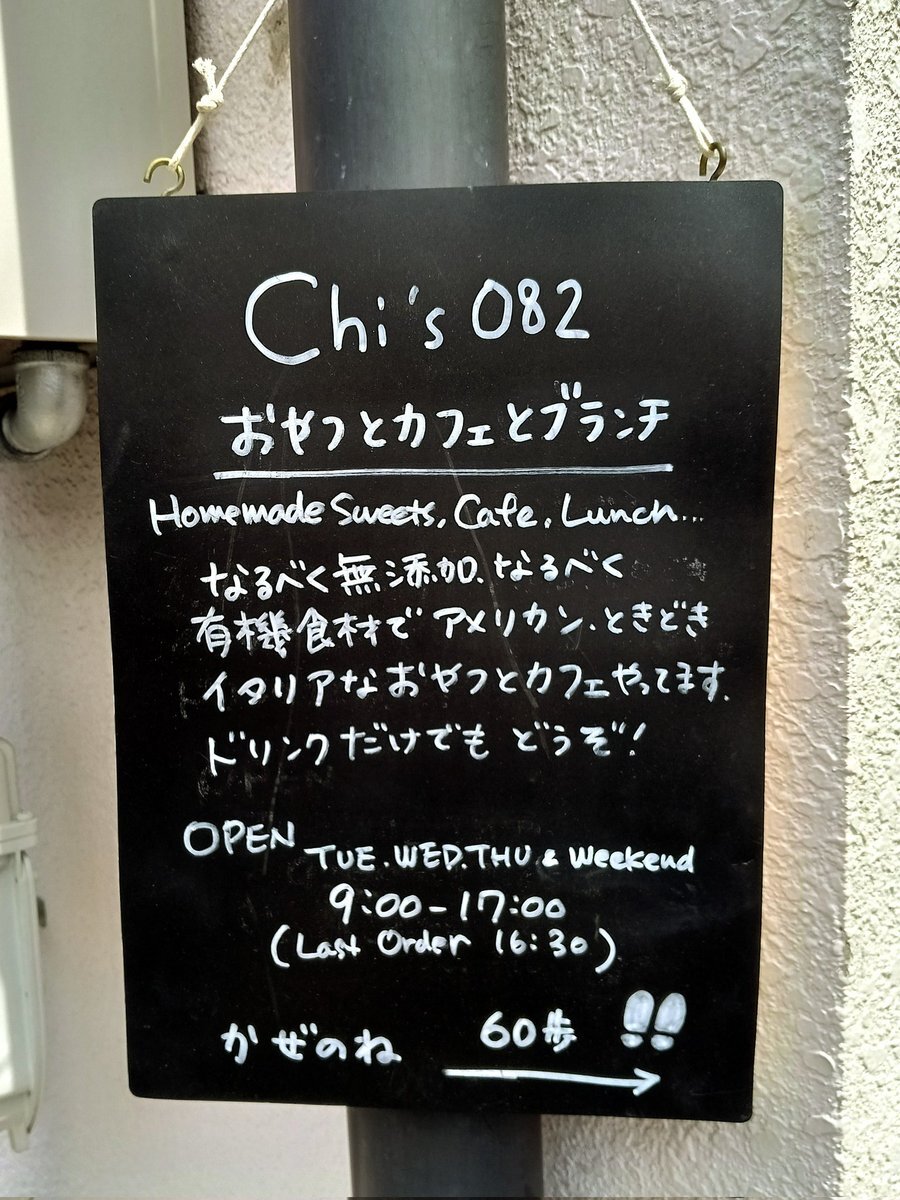 Chi's 082
おやつとカフェとブランチ
Homemade Sweets, Cafe, Lunch...
なるべく無添加、なるべく
有機食材で アメリカン、ときどき
イタリアなおやつとカフェやってます。
ドリンクだけでも どうぞ!
OPEN TUE.WED.THU & Weekend
9:00-17:00
(Last Order 16:30)
かぜのね 60歩